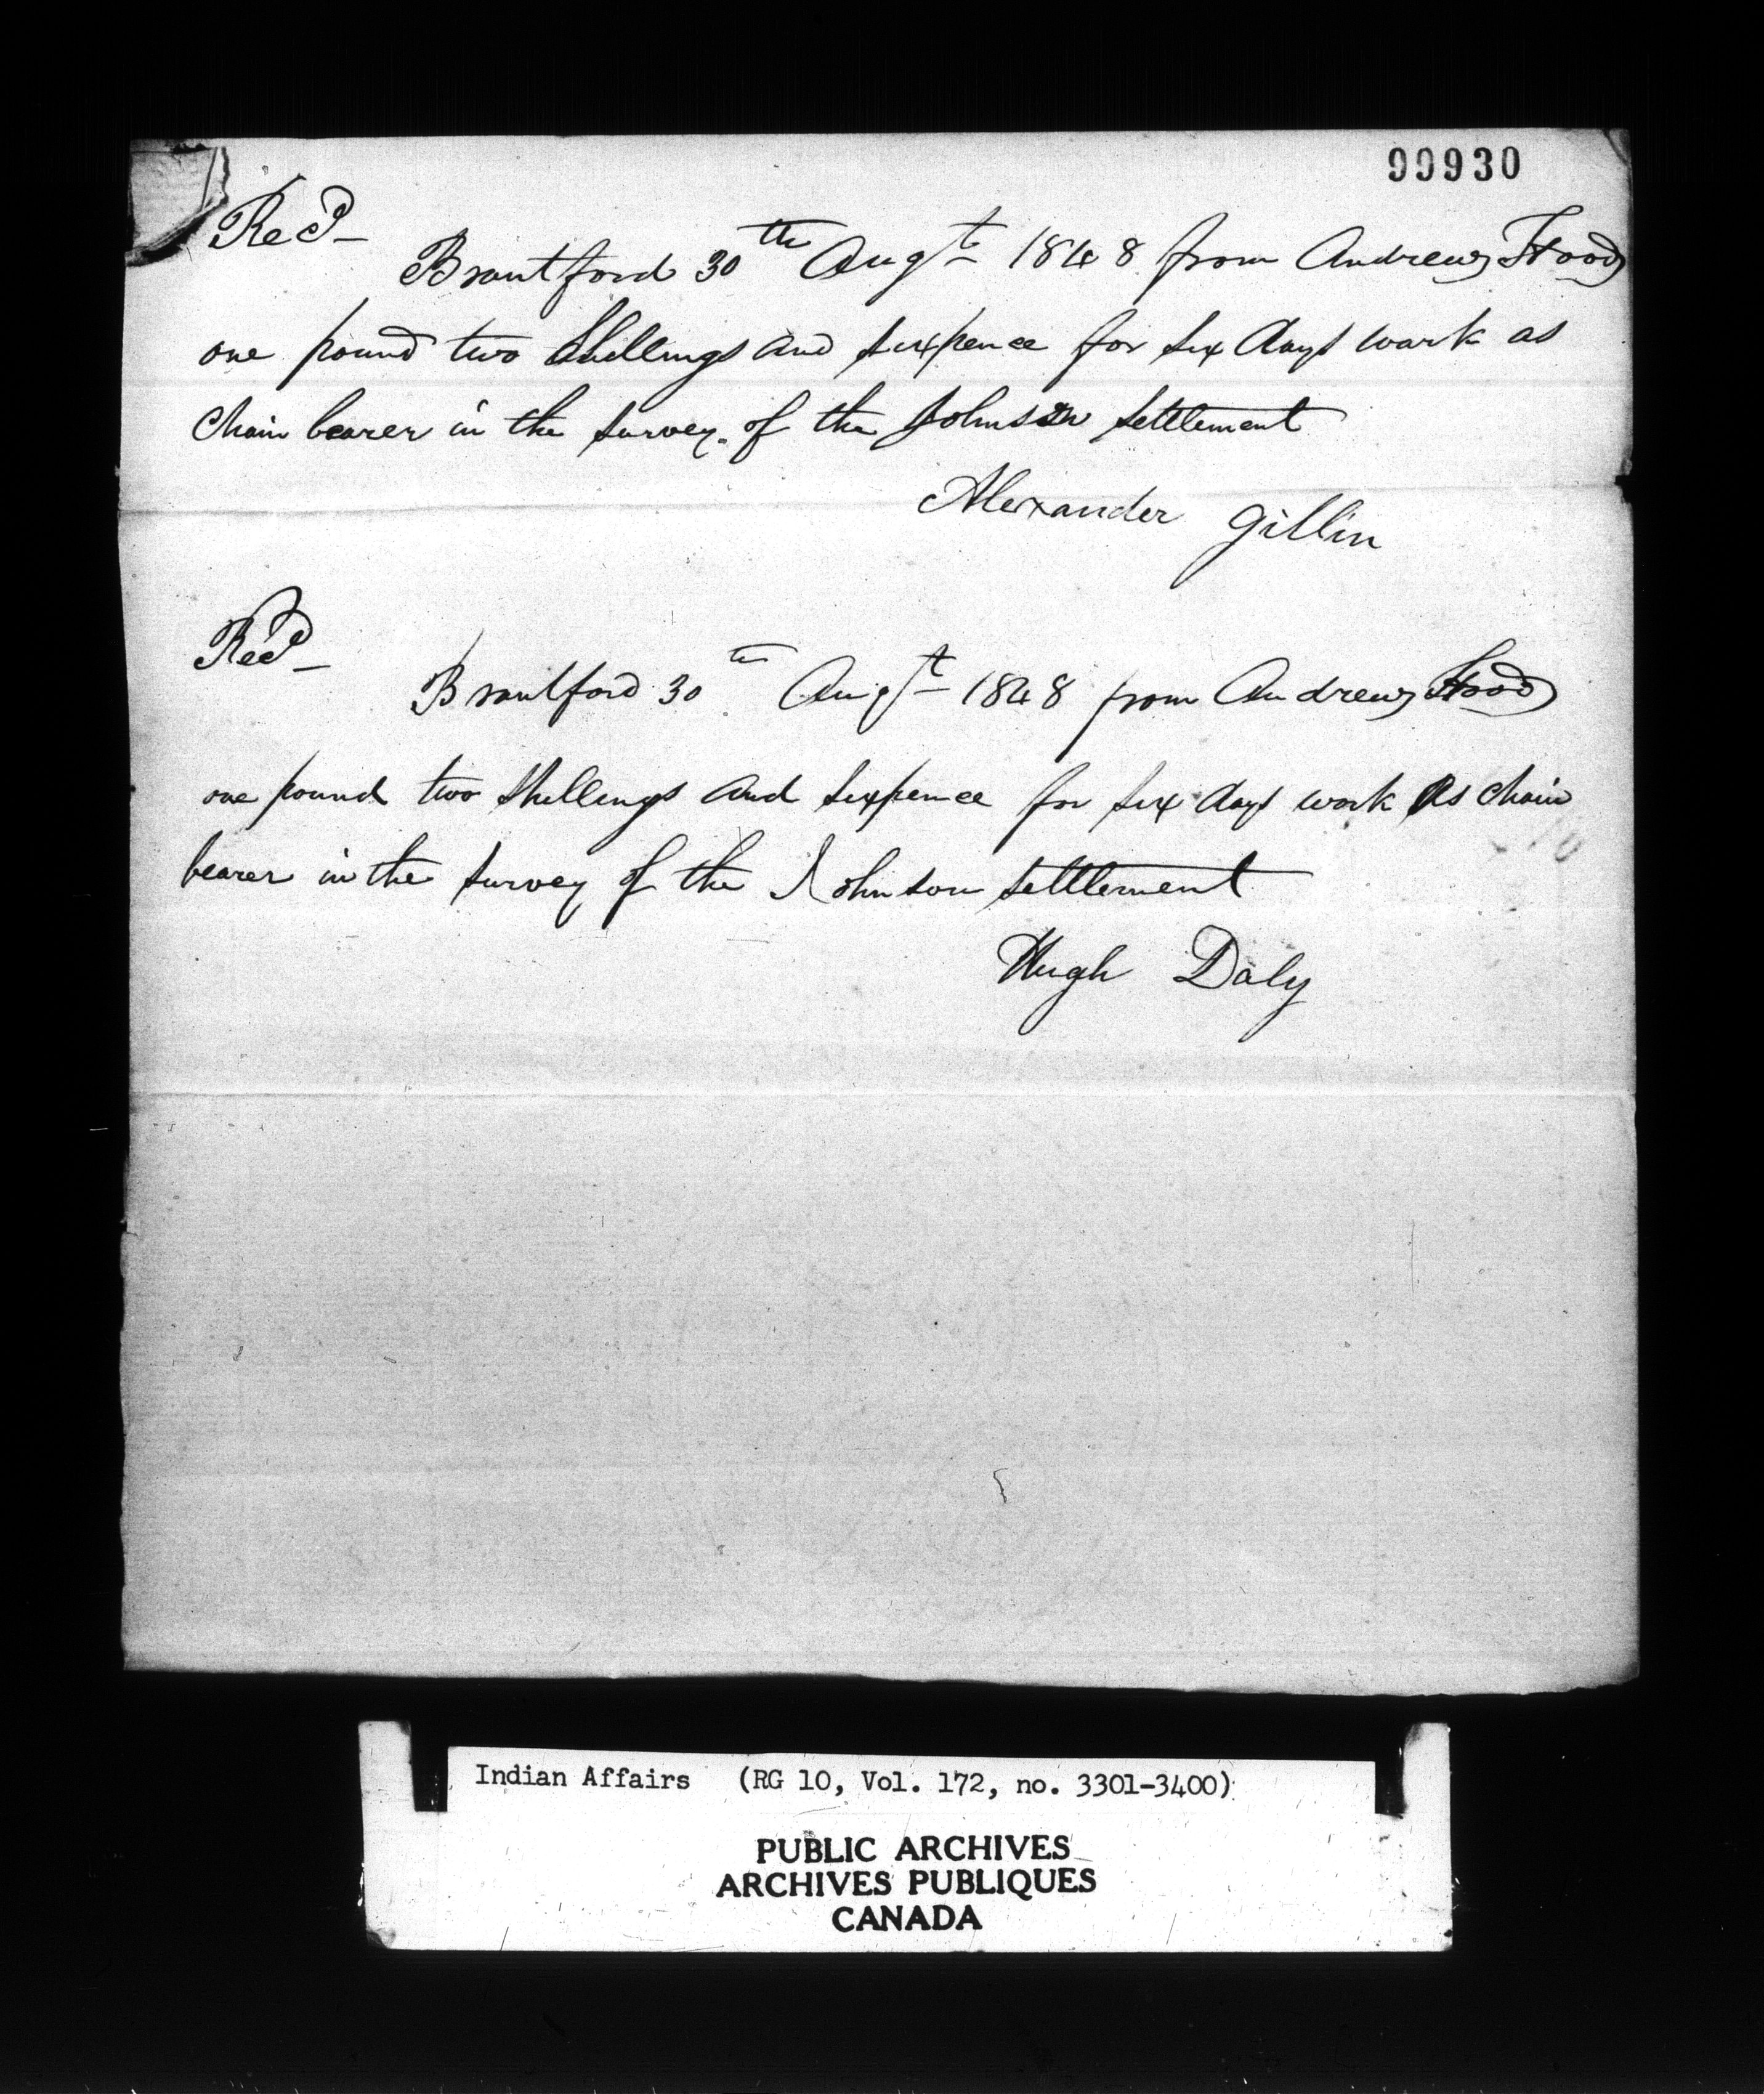 99930
Recd
Brantford 30th Augt 1848 from Andrew Hood
one pound two Shillings and sixpence for six days work as
Chain bearer in the survey of the Johnson settlement
Alexander Gillin
Recd
Brantford 30th Augt 1848 from Andrew Hood
one pound two Shillings and sixpence for six days work As Chain
bearer in the survey of the Johnson settlement
Hugh Daly
Indian Affairs (RG 10, Vol. 172, no. 3301-3400)
PUBLIC ARCHIVES
ARCHIVES PUBLIQUES
CANADA